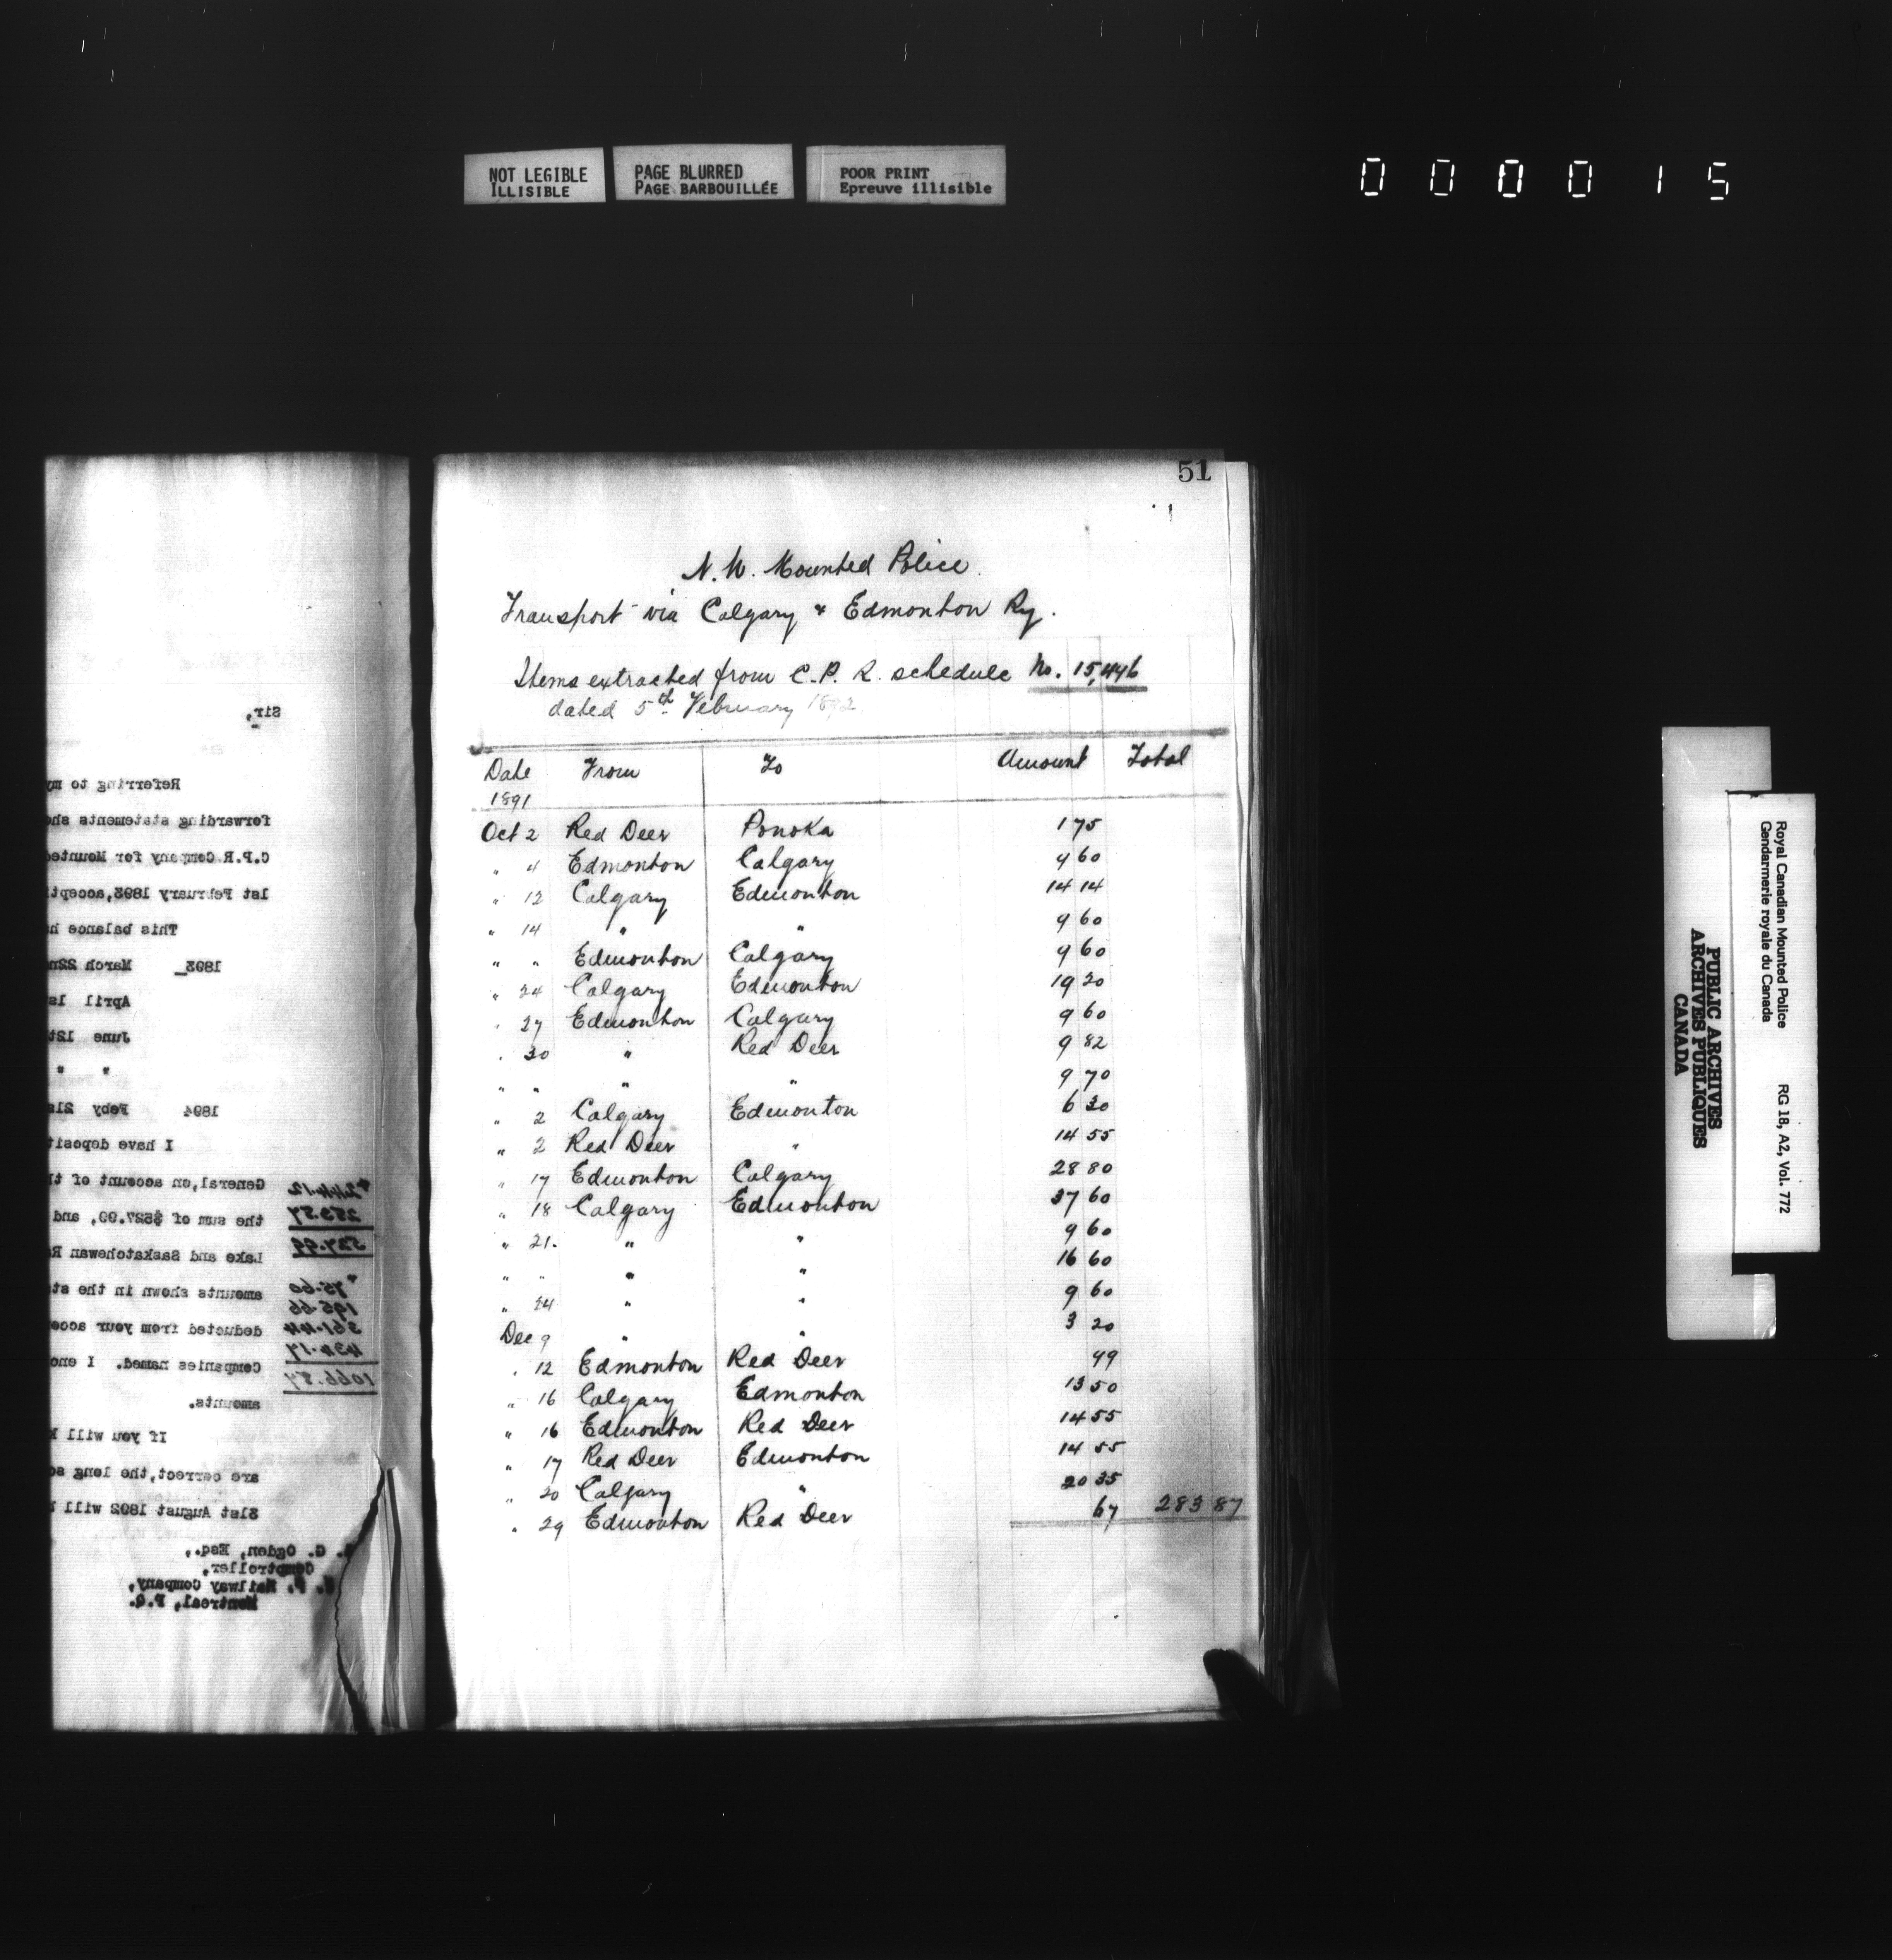 NOT LEGIBLE
ILLISIBLE
PAGE BLURRED
PAGE BARBOUILLÉE
POOR PRINT
Epreuve illisible
000015
Sir,
Referring to my
forwarding statements sho
C.P.R.Company for Mounted
1st February 1893,accept
This balance ha
1893 March 22n
April 1s
June 12t
" "
1894 Feby 21s
I have deposit
General,on account of th
the sum of $527.99, and
Lake and Saskatchewan Ra
amounts shown in the sta
deducted from your acco
Companies named. I enc
amounts.
If you will k
are correct,the long ac
31st August 1892 will b
G. Ogden, Esq.,
Comptroller,
C. P. Railway Company,
Montreal, P.Q.
244.12
283.87
527.99
" 75.60
195.66
361.44
434.17
1066.87
51
N.W. Mounted Police.
Transport via Calgary & Edmonton Ry.
Items extracted from C.P.R. schedule No. 15,446
dated 5th February 1892
Date From To Amount Total
1891
Oct 2 Red Deer Ponoka 1 75
" 4 Edmonton Calgary 9 60
" 12 Calgary Edmonton 14 14
" 14 " " 9 60
" " Edmonton Calgary 9 60
" 24 Calgary Edmonton 19 20
" 27 Edmonton Calgary 9 60
" 30 " Red Deer 9 82
" " " " 9 70
" 2 Calgary Edmonton 6 30
" 2 Red Deer " 14 55
" 17 Edmonton Calgary 28 80
" 18 Calgary Edmonton 37 60
" 21. " " 9 60
" " " " 16 60
" 24 " " 9 60
Dec 9 " " 3 20
" 12 Edmonton Red Deer 49
" 16 Calgary Edmonton 13 50
" 16 Edmonton Red Deer 14 55
" 17 Red Deer Edmonton 14 55
" 20 Calgary " 20 35
" 29 Edmonton Red Deer 67 283 87
PUBLIC ARCHIVES
ARCHIVES PUBLIQUES
CANADA
Royal Canadian Mounted Police
Gendarmerie royale du Canada
RG 18, A2, Vol. 772